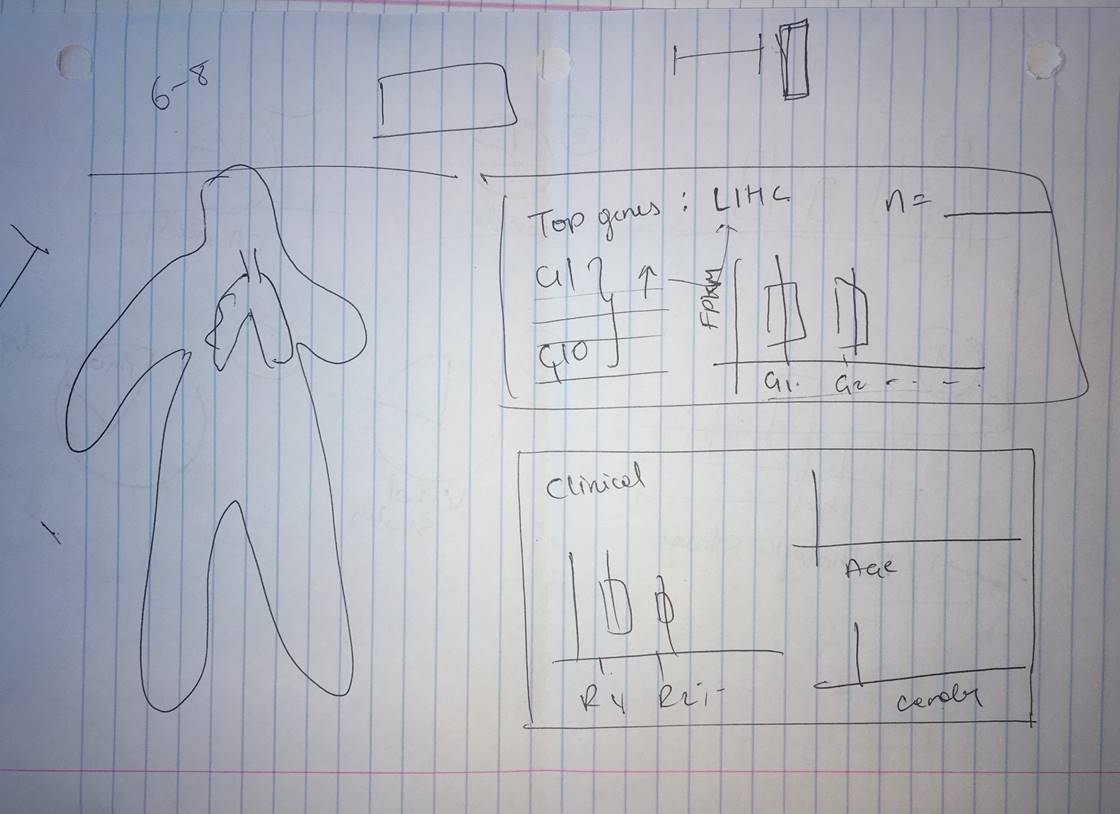 6-8
Top genes : LIHC n=
G1
G10
↑
FPKM
G1. G2 - - - .
Clinical
Age
R1
Gender